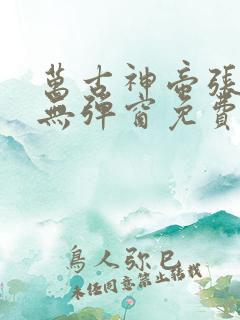 萬古神帝張
無彈窗免費
鳥人弥巳
未经同意禁止转载